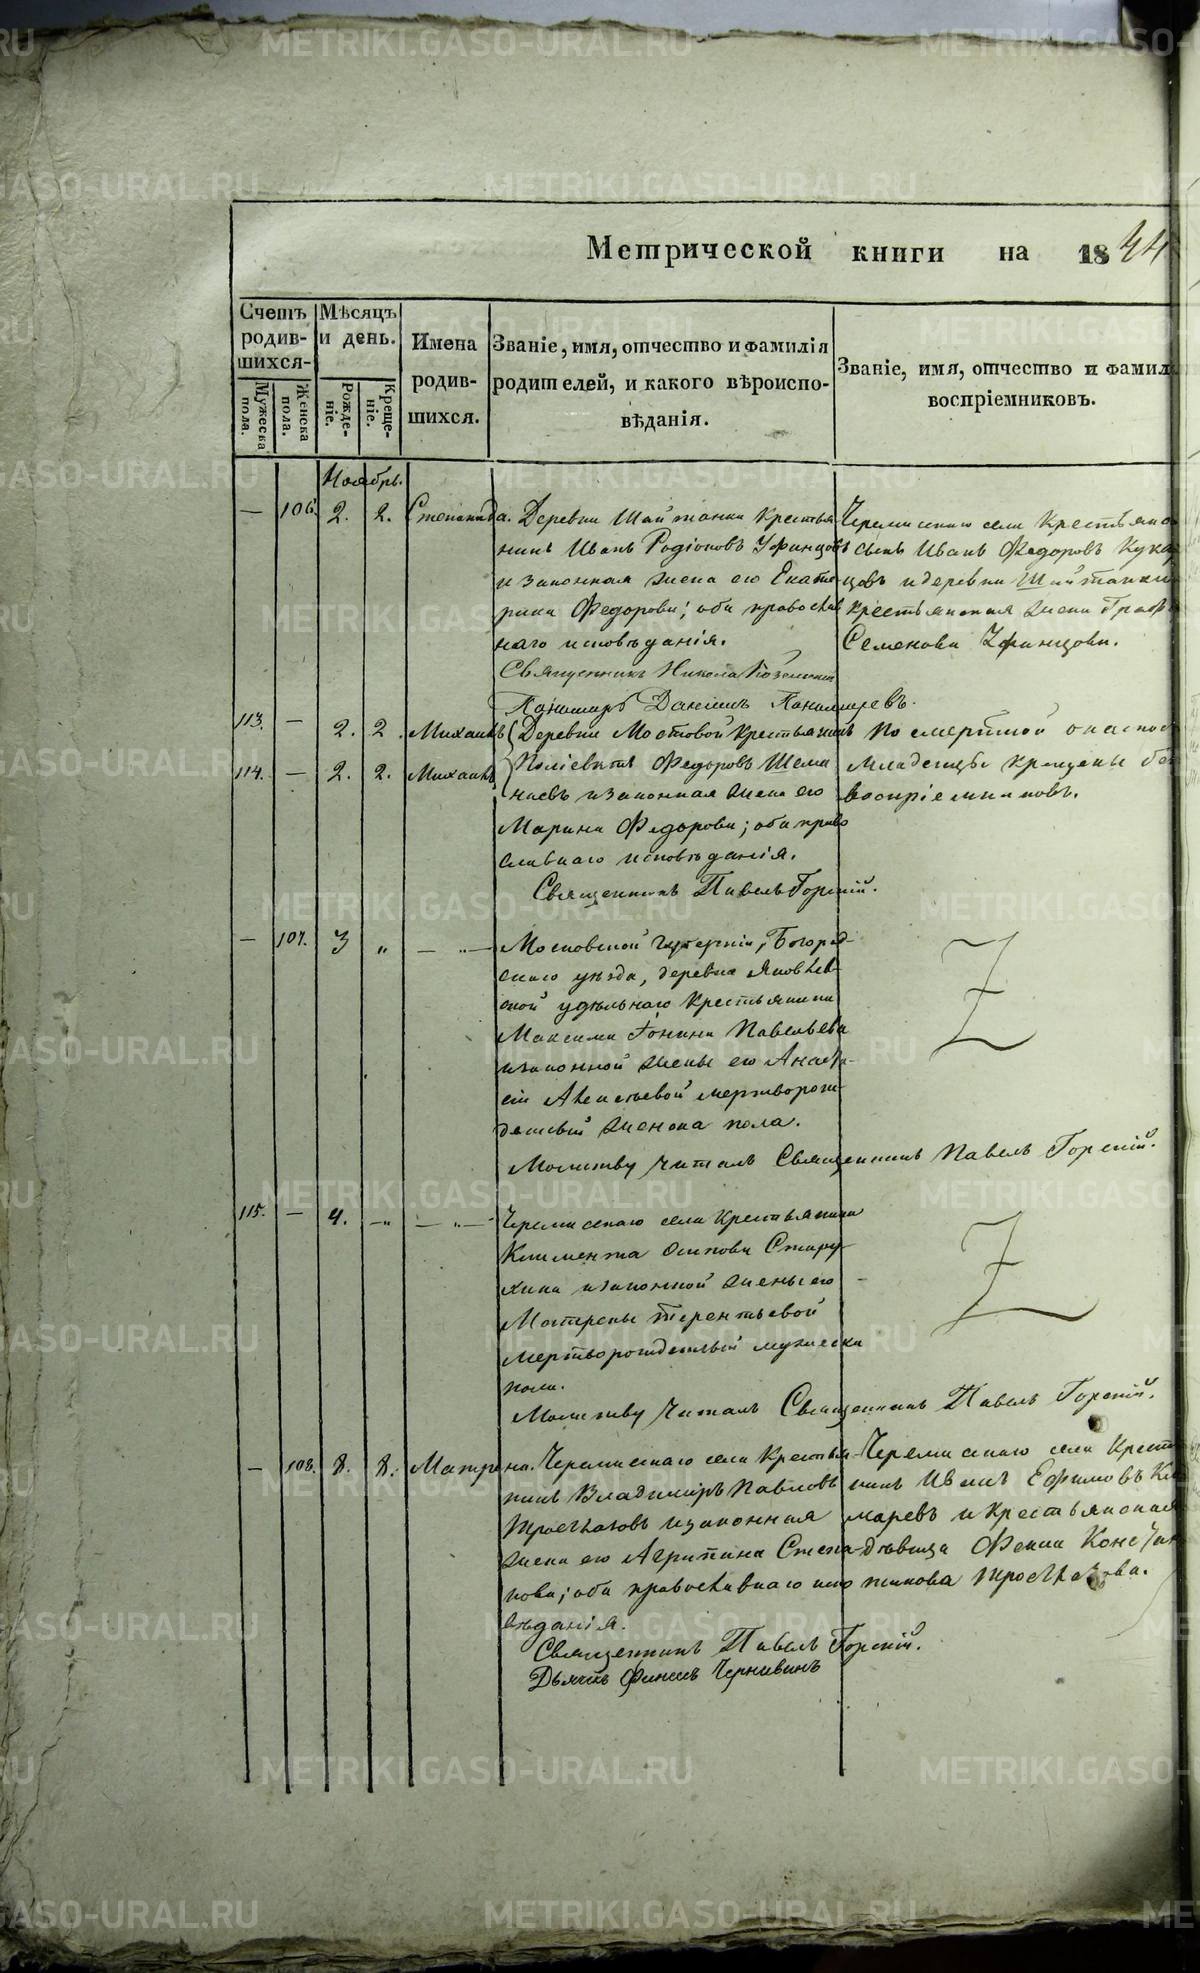 Метрической книги на 1844
Счетъ родившихся-
Мужеска пола.
Женска пола.
Мѣсяцъ и день.
Рожденіе.
Крещеніе.
Имена родившихся.
Званіе, имя, отчество и фамилія
родителей, и какого вѣроиспо-
вѣданія.
Званіе, имя, отчество и фамил
воспріемниковъ.
Ноябрь.
— 106. 2. 2. Степанида.
Деревни Шайтанки крестья
нинъ Иванъ Родіоновъ Уфинцовъ
и законная жена его Екате
рина Федорова; оба православ
наго исповѣданія.
Священникъ Никола
Пономарь Даніилъ Пономаревъ.
Черемисскаго села Крестьянс
сынъ Иванъ Федоровъ Кука
цовъ и деревни Шайтанки
крестьянская жена
Семенова Уфинцова.
113. — 2. 2. Михаилъ
114. — 2. 2. Михаилъ
Деревни Мостовой крестьянинъ
Федоровъ Шема
наевъ и законная жена его
Марина Федорова; оба право
славнаго исповѣданія.
Священникъ Павелъ Горскій.
По смертной опаснос
младенцы крещены без
воспріемниковъ.
— 107. 3 „ — „ —
Московской Губерніи, Богород-
скаго уѣзда, деревни Яковлев-
ской удѣльнаго Крестьянина
Максима Іонина Павельева
и законной жены его Анаста-
сіи Алексѣевой мертворож-
денный женска пола.
Молитву читалъ Священникъ Павелъ Горскій.
115. — 4. — „ — „ —
Черемисскаго села Крестьянина
Климента Осипова Стару-
хина и законной жены его
Матрены Терентьевой
мертворожденный мужеска
пола.
Молитву читалъ Священникъ Павелъ Горскій.
— 108. 8. 8. Матрена.
Черемисскаго села Крестья-
нинъ Владимиръ Павловъ
Просвѣковъ и законная
жена его Агрипина Степа-
нова; оба православнаго испо
вѣданія.
Священникъ Павелъ Горскій.
Дьячекъ Чернавинъ
Черемисскаго села Крестья
нинъ Иванъ Ефимовъ
маревъ и Крестьянская
дѣвица Фекла Констан
тинова
METRIKI.GASO-URAL.RU